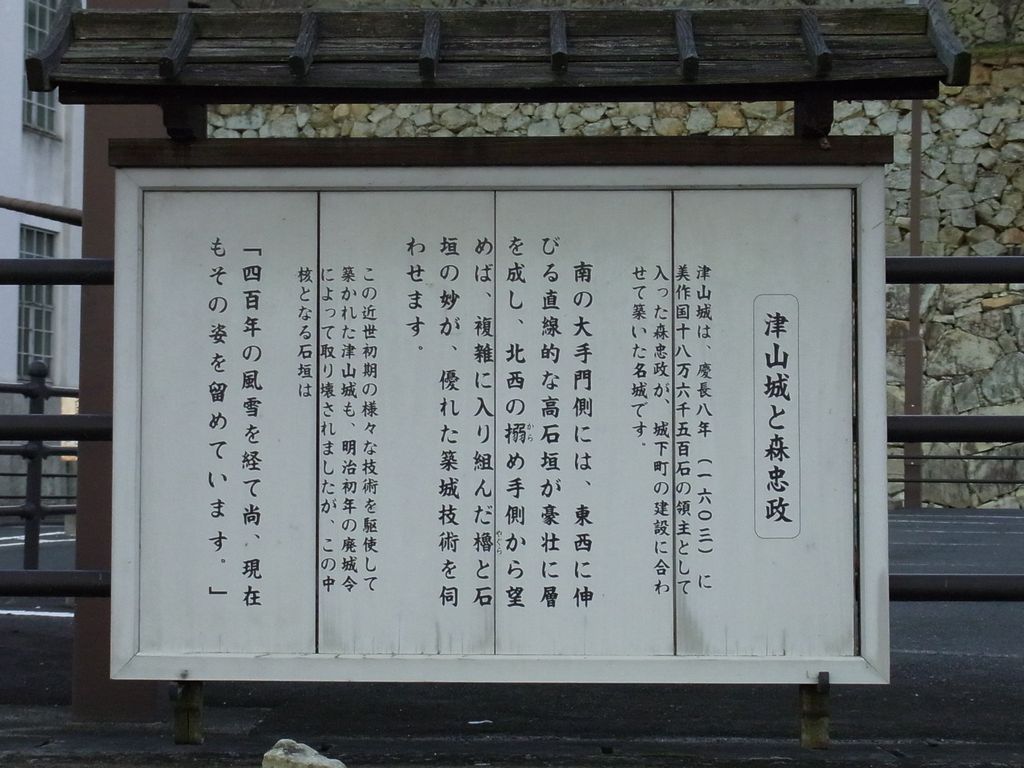 津山城と森忠政
津山城は、慶長八年（一六〇三）に
美作国十八万六千五百石の領主として
入った森忠政が、城下町の建設に合わ
せて築いた名城です。
南の大手門側には、東西に伸
びる直線的な高石垣が豪壮に層
を成し、北西の搦め手側から望
から
めば、複雑に入り組んだ櫓と石
やぐら
垣の妙が、優れた築城技術を伺
わせます。
この近世初期の様々な技術を駆使して
築かれた津山城も、明治初年の廃城令
によって取り壊されましたが、この中
核となる石垣は
「四百年の風雪を経て尚、現在
もその姿を留めています。」